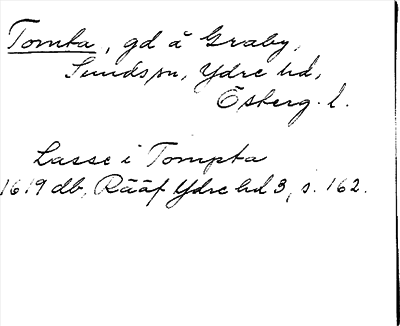 Tomta, gd å Graby,
Sundsjn, Ydre hd,
Österg. l.
Lasse i Tompta
1619 db, Rääf Ydre hd 3, s. 162.